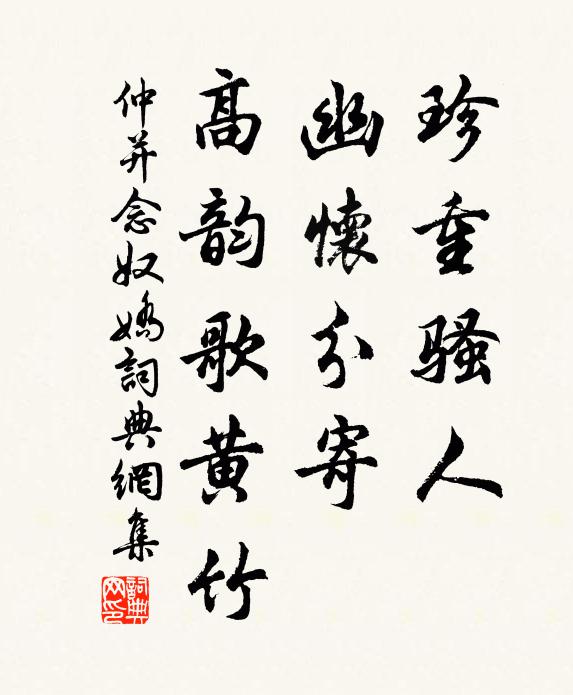 珍重骚人
幽懷分寄
高韵歌黄竹
仲并念奴嬌詞典網集
詞典
网印